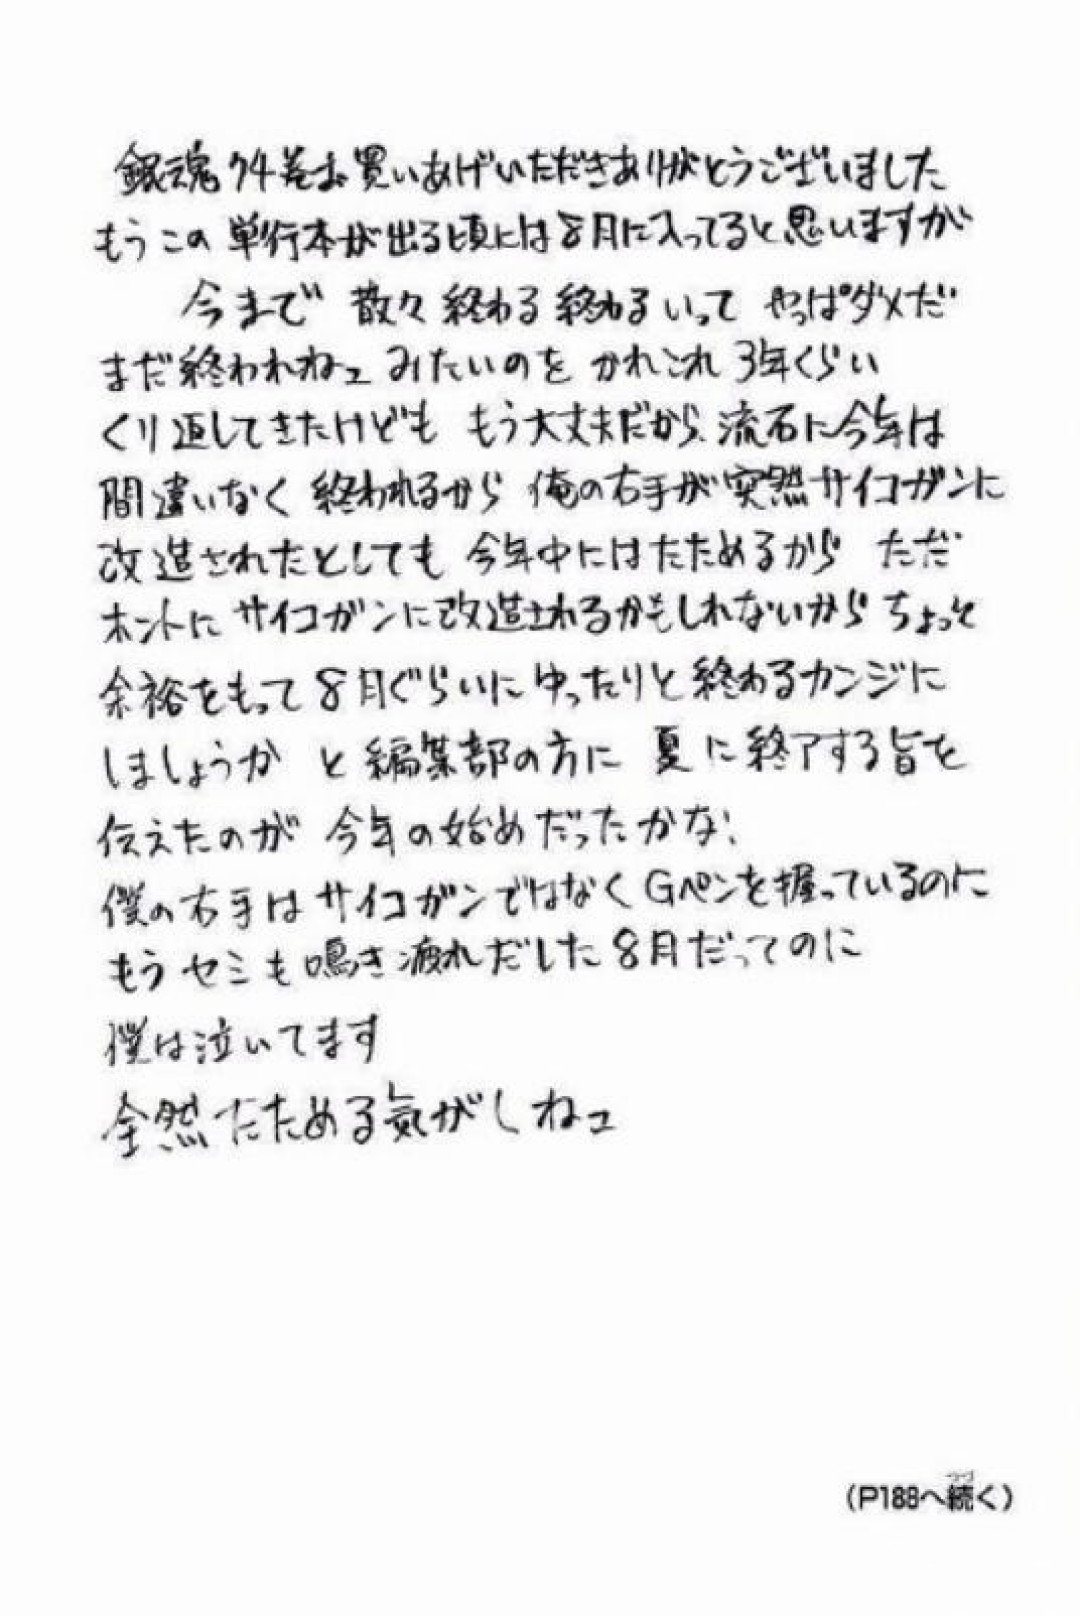 銀魂74巻お買いあげいただきありがとうございました
もうこの単行本が出る頃には8月に入ってると思いますが
今まで 散々終わる終わるいって やっぱダメだ
まだ終われねェ みたいのを かれこれ3年くらい
くり返してきたけども もう大丈夫だから、流石に今年は
間違いなく 終われるから 俺の右手が突然サイコガンに
改造されたとしても 今年中にはたためるから ただ
ホントに サイコガンに改造されるかもしれないから ちょっと
余裕をもって 8月ぐらいに ゆったりと終わるカンジに
しましょうか と編集部の方に 夏に終了する旨を
伝えたのが 今年の始めだったかな
僕の右手はサイコガンではなくGペンを握っているのに
もうセミも鳴き疲れだした8月だってのに
僕は泣いてます
全然たためる気がしねェ
(P188へ続く)
つづ